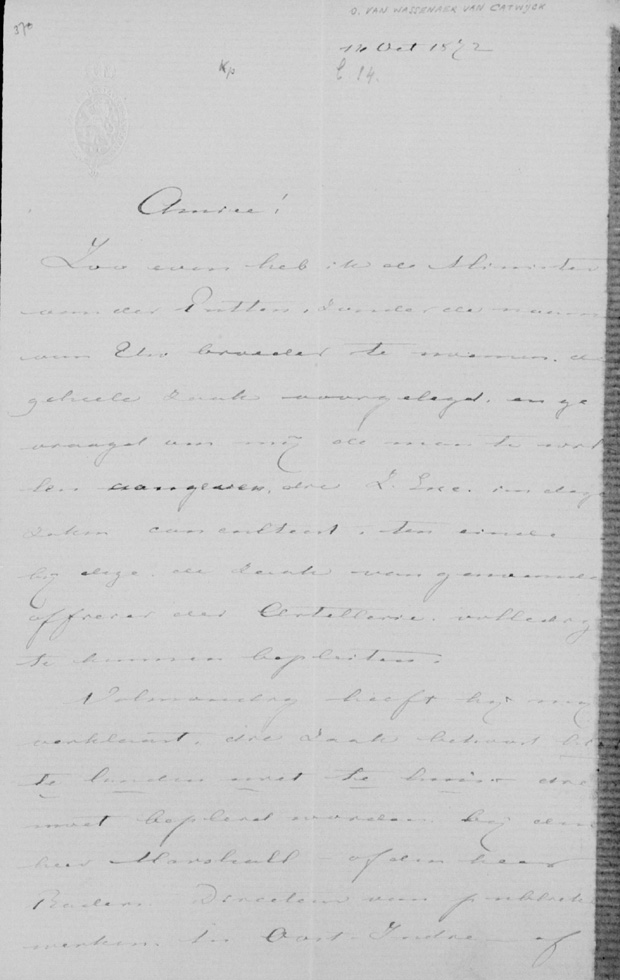 O. VAN WASSENAER VAN CATWIJCK
370
14 Oct 1872
Kp
E 14.
Amice!
Zoo even heb ik de Minister
van der Putten, zonder de naam
van Uw broeder te noemen, de
geheele zaak voorgelegd, en ge
vraagd om mij de man te wil
len aangeven, die Z. Exc. in deze
zaken consulteert, ten einde
bij deze de zaak van genoemde
officier der Artillerie volledig
te kunnen bepleiten.
Volmondig heeft hij mij
verklaart, die zaak behoort
te landen niet te huis, die
moet bepleit worden bij den
heer Marshall of den heer
Directeur van publieke
werken in Oost-Indie of